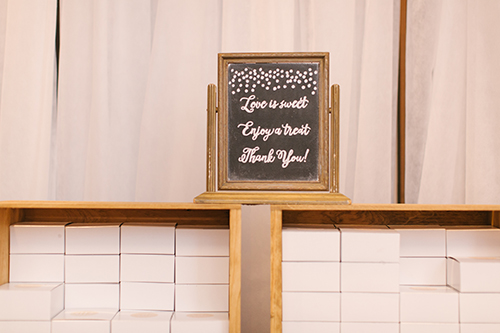 Love is sweet
Enjoy a treat
Thank You!